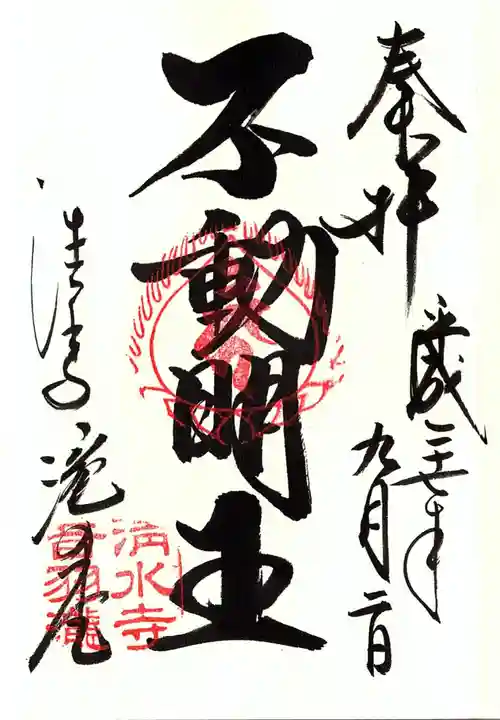 奉拝
平成二十七年
九月二日
不動明王
清水寺
清水寺
音羽瀧